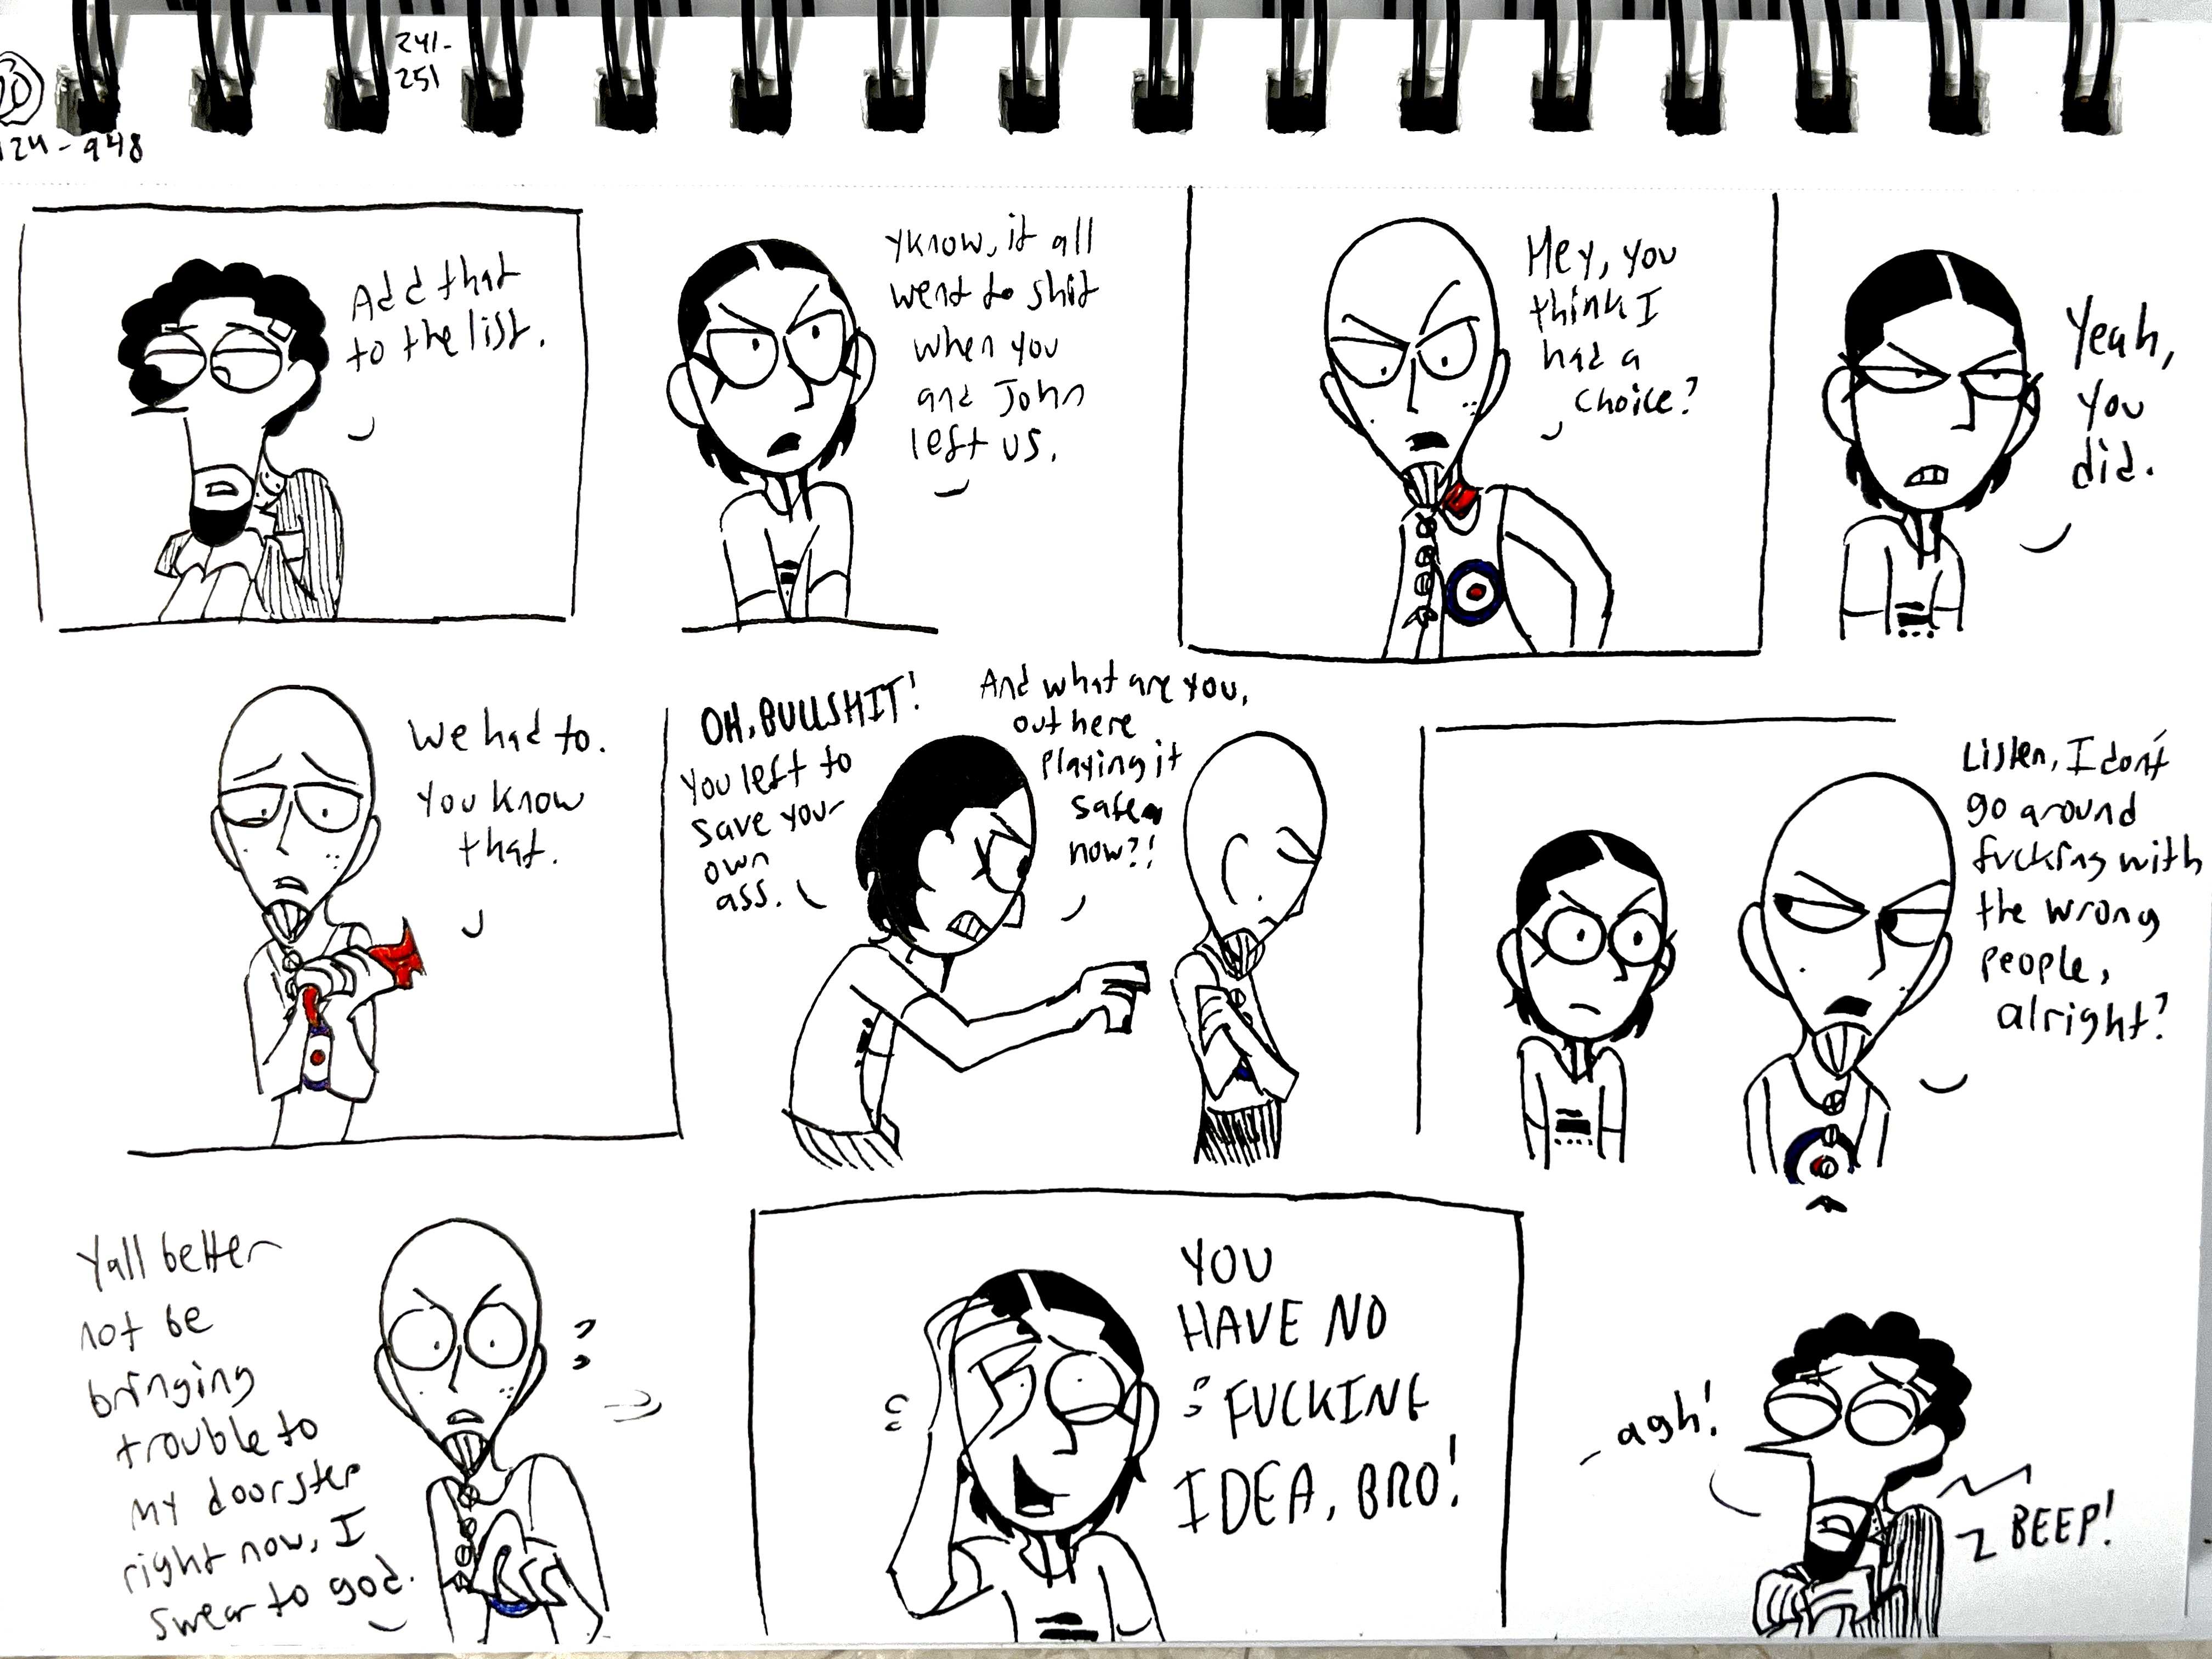 241-
251
124-948
Add that
to the list.
Yknow, it all
went to shit
when you
and John
left us.
Hey, you
think I
had a
choice?
Yeah,
you
did.
We had to.
You know
that.
OH, BULLSHIT!
You left to
save your
own
ass.
And what are you,
out here
playing it
safe
now?!
Listen, I don't
go around
fucking with
the wrong
people,
alright?
Yall better
not be
bringing
trouble to
my doorstep
right now, I
swear to god.
YOU
HAVE NO
FUCKING
IDEA, BRO!
agh!
BEEP!